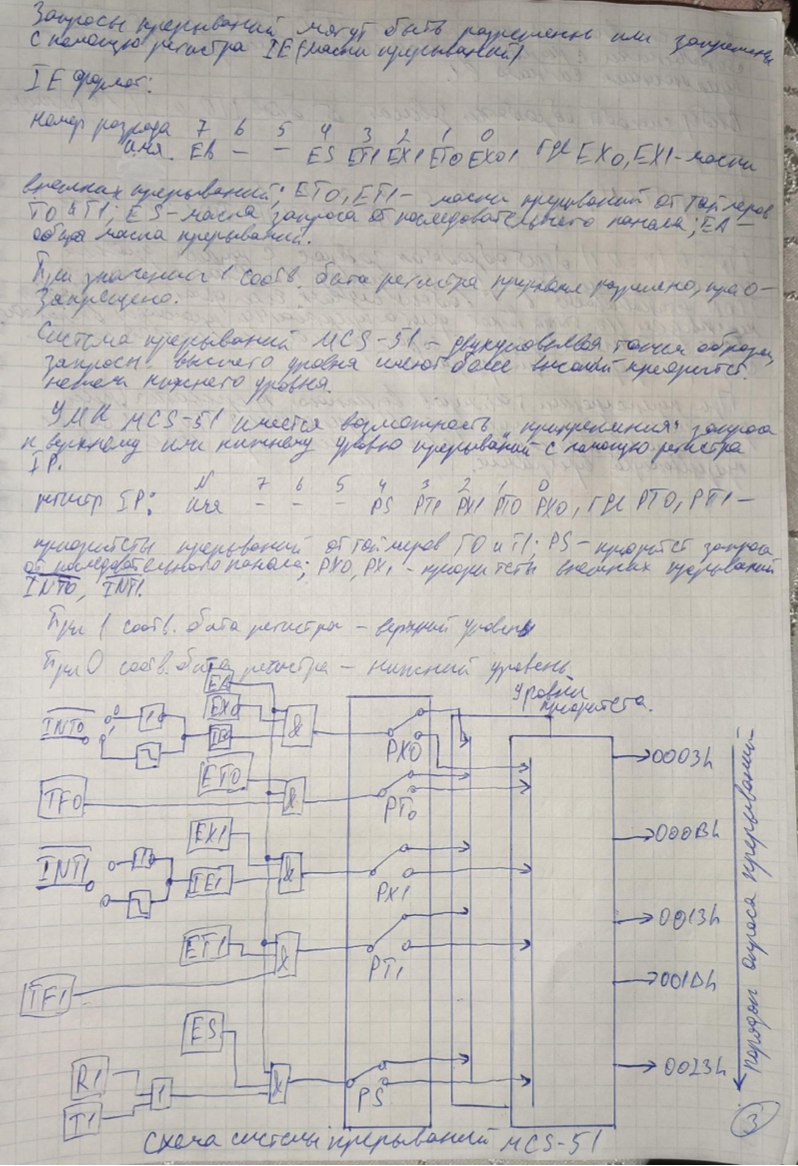 Запросы прерываний могут быть разрешены или запрещены
с помощью регистра IE (маски прерываний)
IE формат:
номер разряда 7 6 5 4 3 2 1 0
имя. EA – – ES ET1 EX1 ET0 EX0, где EX0, EX1 – маски
внешних прерываний; ET0, ET1 – маски прерываний от таймеров
T0 и T1; ES – маска запроса от последовательного канала; EA –
общая маска прерываний.
При значении 1 соотв. бита регистра прерывание разрешено, при 0 –
запрещено.
Система прерываний MCS-51 – двухуровневая таким образом,
запросы высшего уровня имеют более высокий приоритет.
нежели нижнего уровня.
У МК MCS-51 имеется возможность прикрепления запроса
к верхнему или нижнему уровню прерываний с помощью регистра
IP.
регистр IP: N 7 6 5 4 3 2 1 0
имя – – – PS PT1 PX1 PT0 PX0, где PT0, PT1 –
приоритеты прерываний от таймеров T0 и T1; PS – приоритет запроса
от последовательного канала; PX0, PX1 – приоритеты внешних прерываний
INT0, INT1.
При 1 соотв. бита регистра – верхний уровень
При 0 соотв. бита регистра – нижний уровень
EA
уровни
приоритета.
INT0
0
1
EX0
IE0
&
PX0
0003h
ET0
TF0
&
PT0
EX1
000Bh
INT1
IE1
&
PX1
0013h
ET1
&
PT1
001Bh
TF1
ES
0023h
R1
1
&
PS
T1
порядок опроса прерываний
3
Схема системы прерываний MCS-51